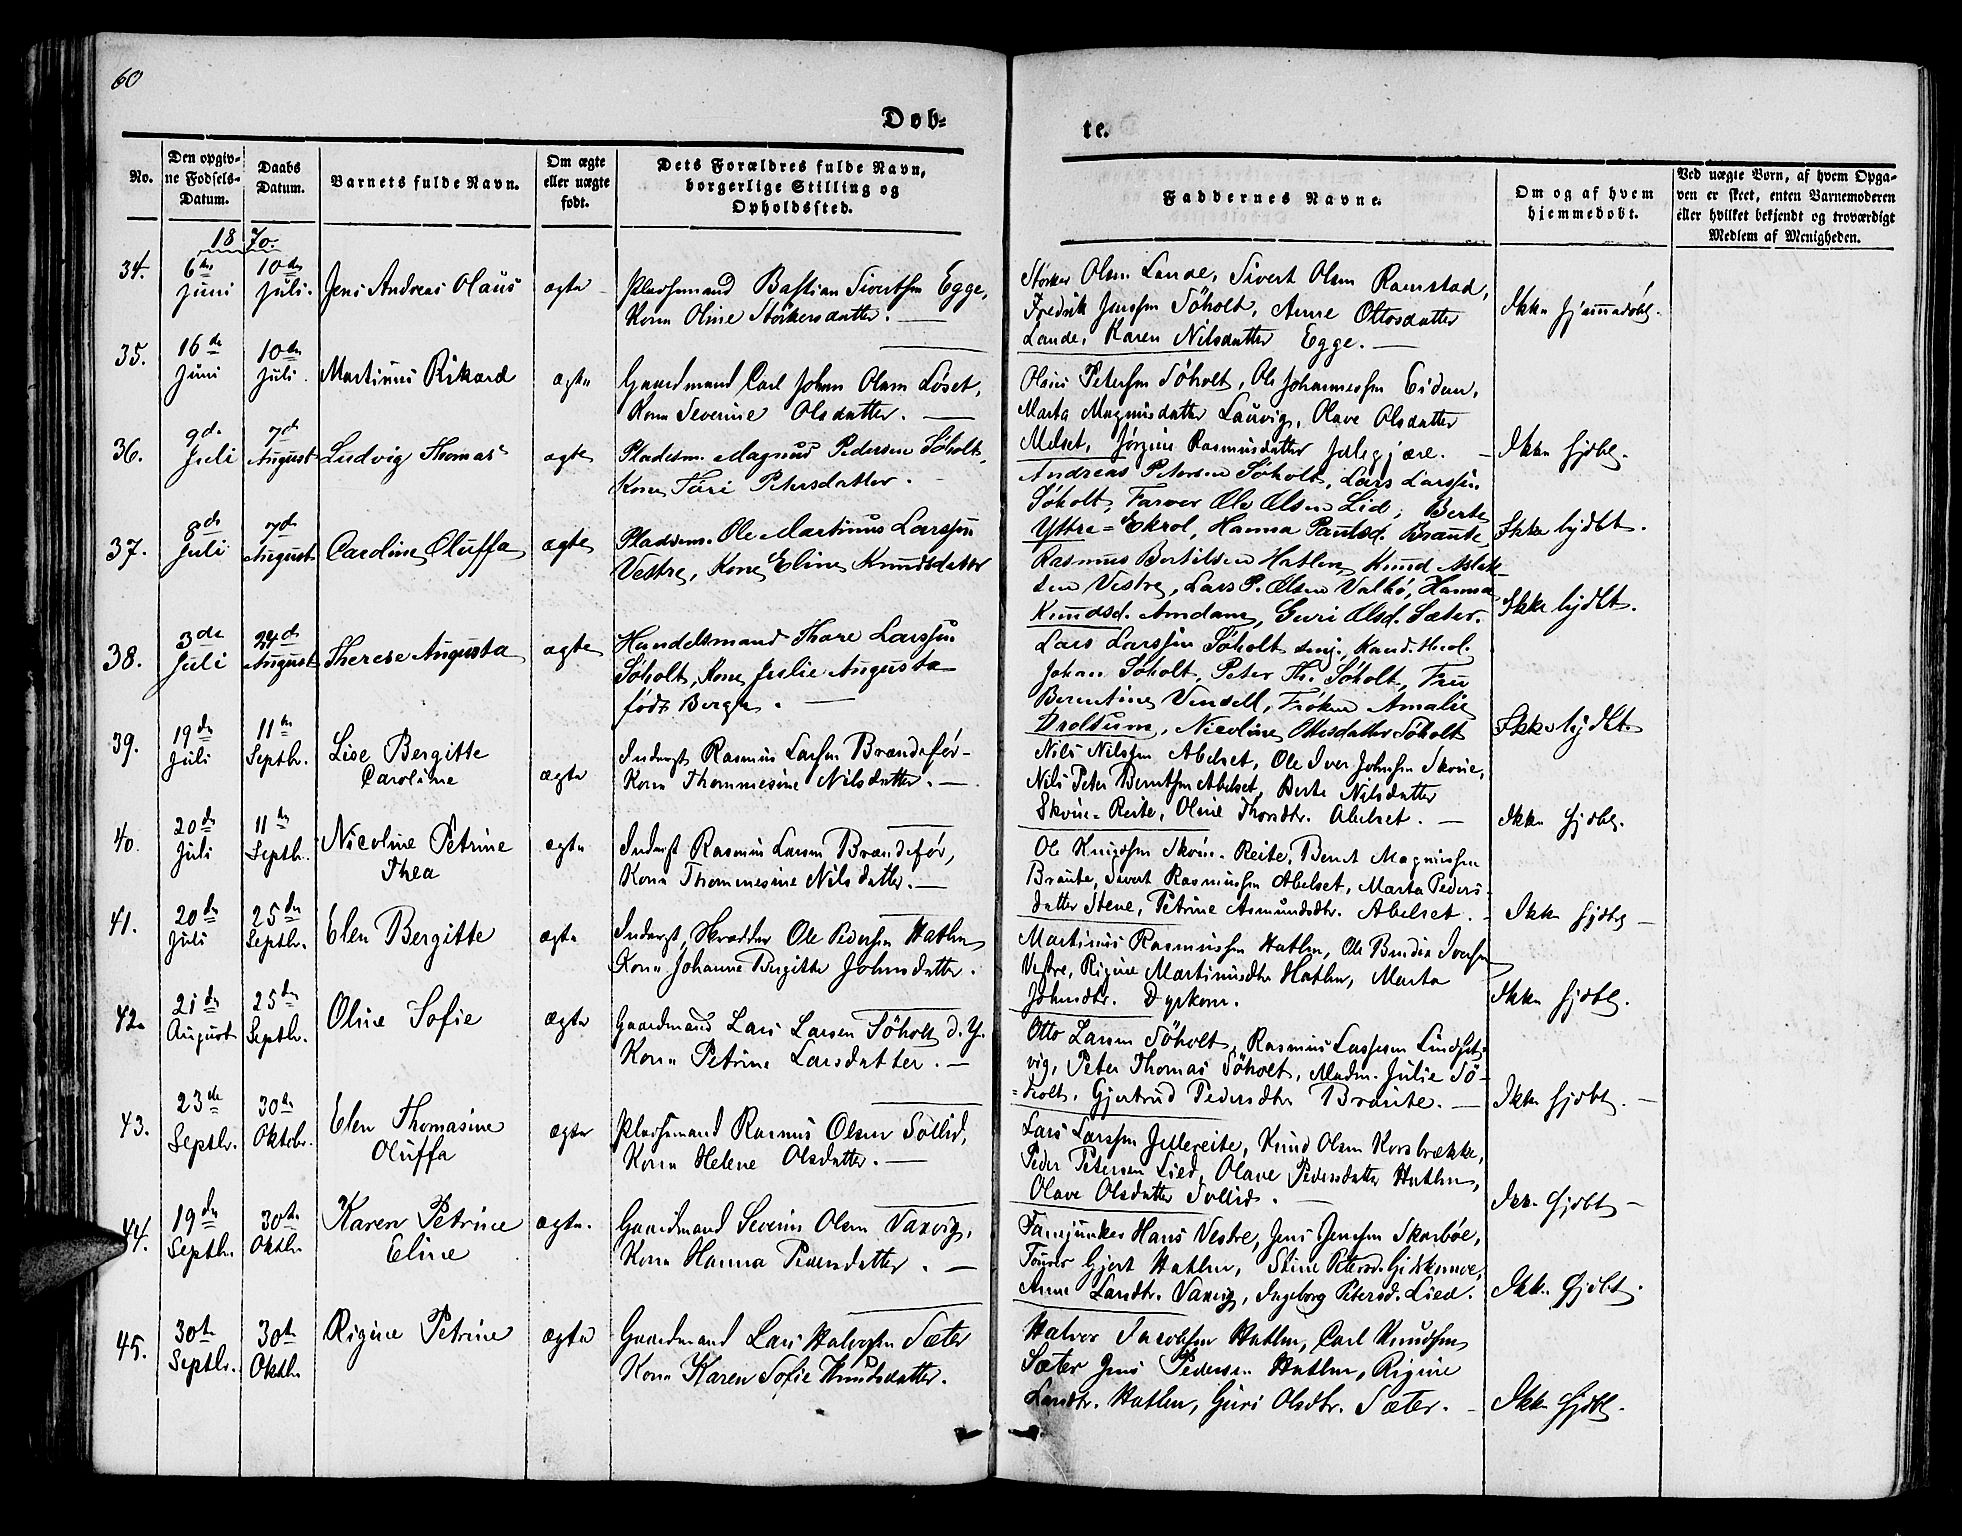 60
Døb-
te.
No.
Den opgiv-
ne Fødsels-
Datum.
Daabs
Datum.
Barnets fulde Navn.
Om ægte
eller uægte
født.
Dets Forældres fulde Navn,
borgerlige Stilling og
Opholdssted.
Faddernes Navne.
Om og af hvem
hjemmedøbt.
Ved uægte Børn, af hvem Opga-
ven er skeet, enten Barnemoderen
eller hvilket bekjendt og troværdigt
Medlem af Menigheden.
1870.
34. 6te Juni 10de Juli. Jens Andreas Olaus ægte Pladsemand Bastian Sivertsen Egge,
Kone Oline Størkersdatter.
Størker Olsen Lande, Sivert Olsen Ramstad,
Fredrik Jenssen Søholt, Anne Ottosdatter
Lande, Karen Nilsdatter Egge.
Ikke hjemmedøbt.
35. 16de Juni 10de Juli. Martinus Rikard ægte Gaardmand Carl Johan Olsen Løset,
Kone Severine Olsdatter.
Olaus Petersen Søholt, Ole Johannessen Eidem,
Marta Magnusdatter Lauvig, Olave Olsdatter
Melset, Jørgine Rasmusdatter
Ikke hjdbt.
36. 9de Juli 7de August Ludvig Thomas ægte Pladsem. Magnus Pedersen Søholt,
Kone Turi Petersdatter.
Andreas Petersen Søholt, Lars Larssen
Søholt, Farver Ole Olsen Lid, Berte
Ystre-Ekrol, Hanna Paulsd. Braute
Ikke hjdbt.
37. 8de Juli 7de August Caroline Oluffa ægte Pladsem. Ole Martinus Larssen
Vestre, Kone Eline Knudsdatter
Rasmus Bertilsen Hatlen, Knud Aslak-
sen Vestre, Lars P. Olsen Valbø, Hanna
Knudsd. Amdam, Guri Olsd. Sæter.
Ikke hjdbt.
38. 3de Juli 24de August Therese Augusta ægte Handelsmand Thore Larssen
Søholt, Kone Julie Augusta
født Bergh.
Lars Larssen Søholt senj., Kand. theol.
Johan Søholt, Peter Th. Søholt, Fru
Berentine Vendell, Frøken Amalie
Nicoline Ottesdatter Søholt
Ikke hjdbt.
39. 19de Juli 11te Septbr. Lise Bergitte
Caroline ægte Inderst Rasmus Larsen Brandsfør-
Kone Thommesine Nilsdatter.
Nils Nilssen Abelset, Ole Iver Johnsen Skoue,
Nils Peter Berntsen Abelset, Berte Nilsdatter
Skoue-Reite, Oline Thorsdtr. Abelset.
Ikke hjdbt.
40. 20de Juli 11te Septbr. Nicoline Petrine
Thea ægte Inderst Rasmus Larsen Brandsfør,
Kone Thommesine Nilsdatter.
Ole Knudsen Skoue-Reite, Bernt Magnussen
Braute, Sivert Rasmussen Abelset, Marta Peders-
datter Stene, Petrine Asmundsdtr. Abelset.
Ikke hjdbt
41. 20de Juli 25de Septbr. Elen Bergitte ægte Inderst, Skrædder Ole Pedersen Hatlen
Kone Johanne Bergitte Johnsdatter.
Martinus Rasmussen Hatlen, Ole Iversen
Vestre, Rigine Martinusdtr Hatlen, Marta
Johnsdtr. Dyrkorn.
Ikke hjdbt.
42. 21de August 25de Septbr. Oline Sofie ægte Gaardmand Lars Larsen Søholt d. y.
Kone Petrine Larsdatter.
Otto Larsen Søholt, Rasmus Lassesen Lindset-
vig, Peter Thomas Søholt, Madm. Julie Sø-
holt, Gjertrud Pedersdtr Braute.
Ikke hjdbt.
43. 23de Septbr. 30te Oktobr. Elen Thomasine
Oluffa ægte Pladsemand Rasmus Olsen Sollid,
Kone Helene Olsdatter.
Lars Larssen Jellereite, Knud Olsen Korsbrække,
Peder Petersen Lied, Olave Pedersdatter Hatlen,
Olave Olsdatter Sollid.
Ikke hjdbt
44. 19de Septbr. 30te Oktbr. Karen Petrine
Eline ægte. Gaardmand Severin Olsen Vaxvig,
Kone Hanna Pedersdatter.
Fanejunker Hans Vestre, Jens Jensen Skarbøe,
Gjert Hatlen, Stine Petersd. Gidskemoe,
Anne Larsdtr. Vaxvig, Ingeborg Petersd. Lied.
Ikke hjdbt.
45. 30te Septbr. 30te Oktbr. Rigine Petrine ægte Gaardmand Lars Halvorsen Sæter
Kone Karen Sofie Knudsdatter.
Halvor Jacobsen Hatlen, Carl Knudsen
Sæter, Jens Pedersen Hatlen, Rigine
Larsdtr. Hatlen, Guri Olsdtr. Sæter.
Ikke hjdbt.